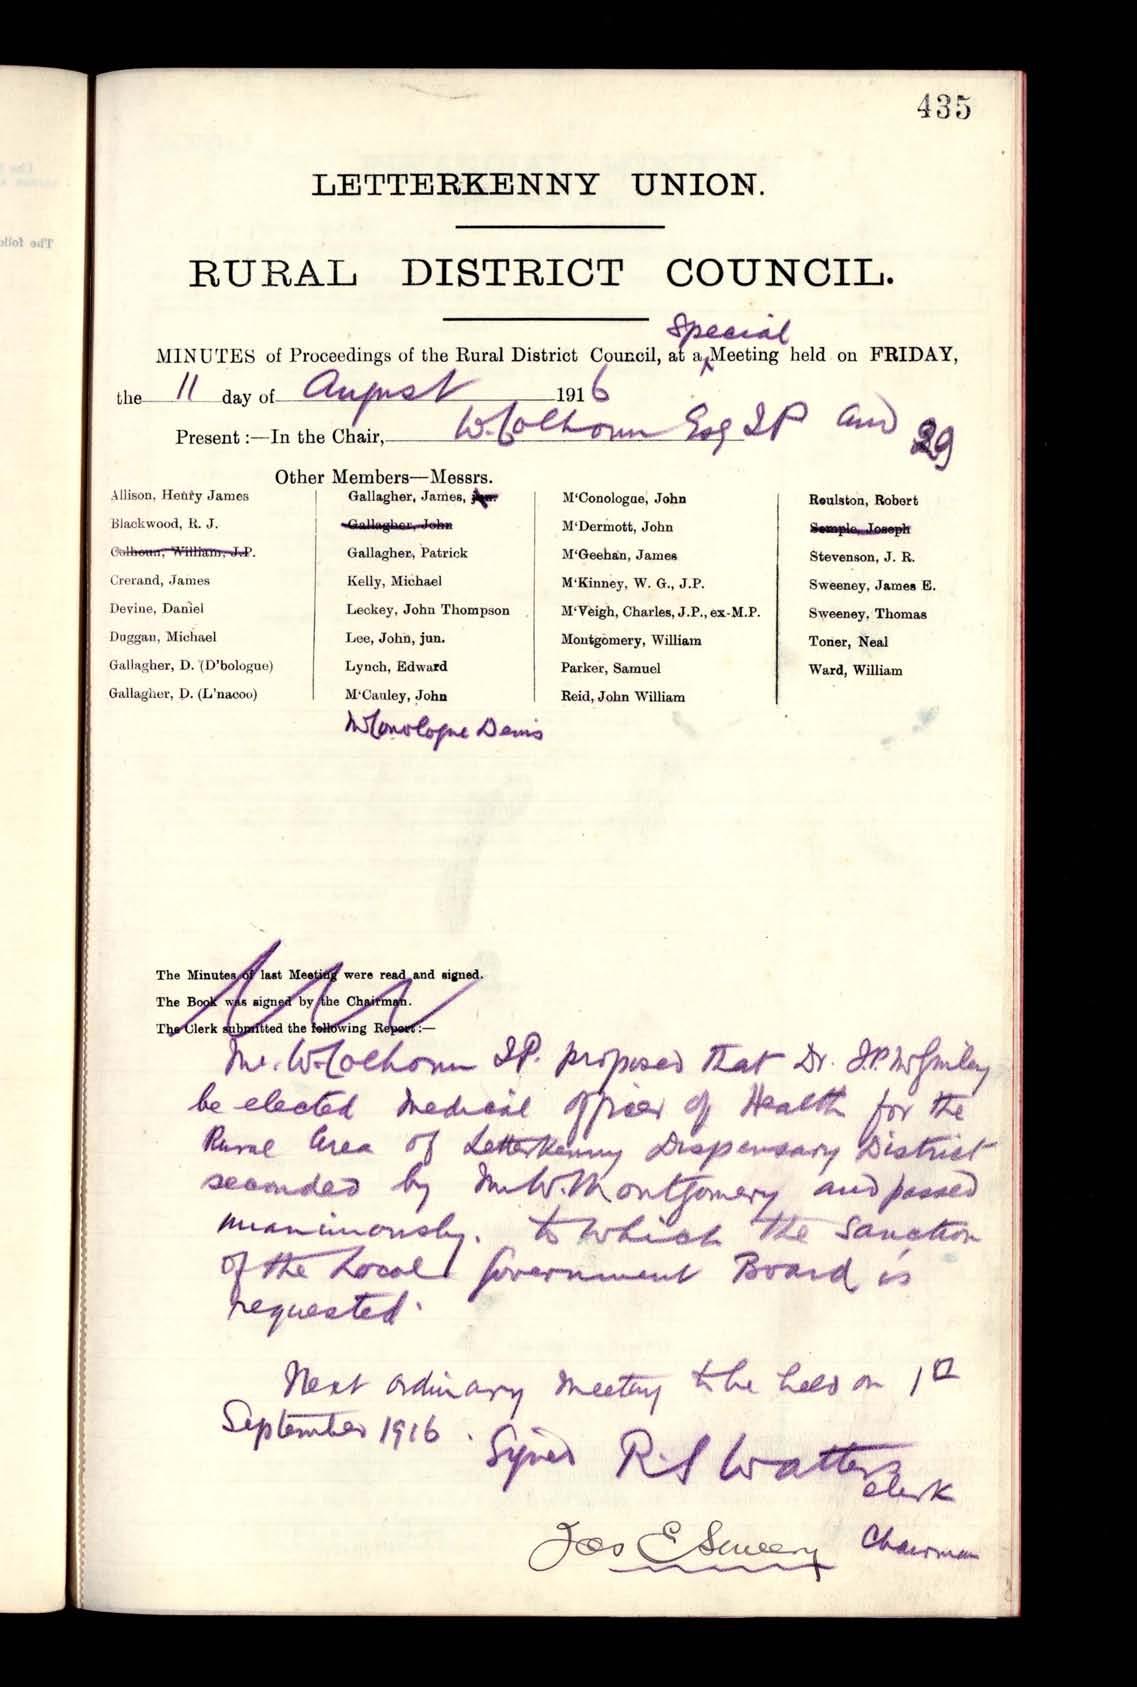 435
LETTERKENNY UNION.
RURAL DISTRICT COUNCIL.
Special
MINUTES of Proceedings of the Rural District Council, at a Meeting held on FRIDAY,
the 11 day of August 1916
Present :—In the Chair, W. Colhoun Esq JP and 29
Other Members—Messrs.
Allison, Henry James
Blackwood, R. J.
Calhoun, William, J.P.
Crerand, James
Devine, Daniel
Duggan, Michael
Gallagher, D. (D'bologue)
Gallagher, D. (L'nacoo)
Gallagher, James, jun.
Gallagher, John
Gallagher, Patrick
Kelly, Michael
Leckey, John Thompson
Lee, John, jun.
Lynch, Edward
M'Cauley, John
McConologue Denis
M'Conologue, John
M'Dermott, John
M'Geehan, James
M'Kinney, W. G., J.P.
M'Veigh, Charles, J.P., ex-M.P.
Montgomery, William
Parker, Samuel
Reid, John William
Roulston, Robert
Semple, Joseph
Stevenson, J. R.
Sweeney, James E.
Sweeney, Thomas
Toner, Neal
Ward, William
The Minutes of last Meeting were read and signed.
The Book was signed by the Chairman.
The Clerk submitted the following Report :—
Mr. W. Colhoun JP. proposed that Dr. J.P. McGinley
be elected Medical officer of Health for the
Rural Area of Letterkenny Dispensary District
seconded by Mr W. Montgomery and passed
unanimously. to which the Sanction
of the Local Government Board is
requested.
Next ordinary Meeting to be held on 1st
September 1916.
Signed R. S Watters
Clerk
Jas E Sweeney Chairman